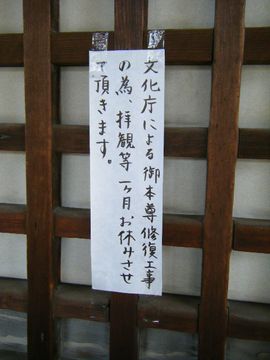 文化庁による御本尊修復工事
の為、拝観等一ヶ月お休みさせ
て頂きます。